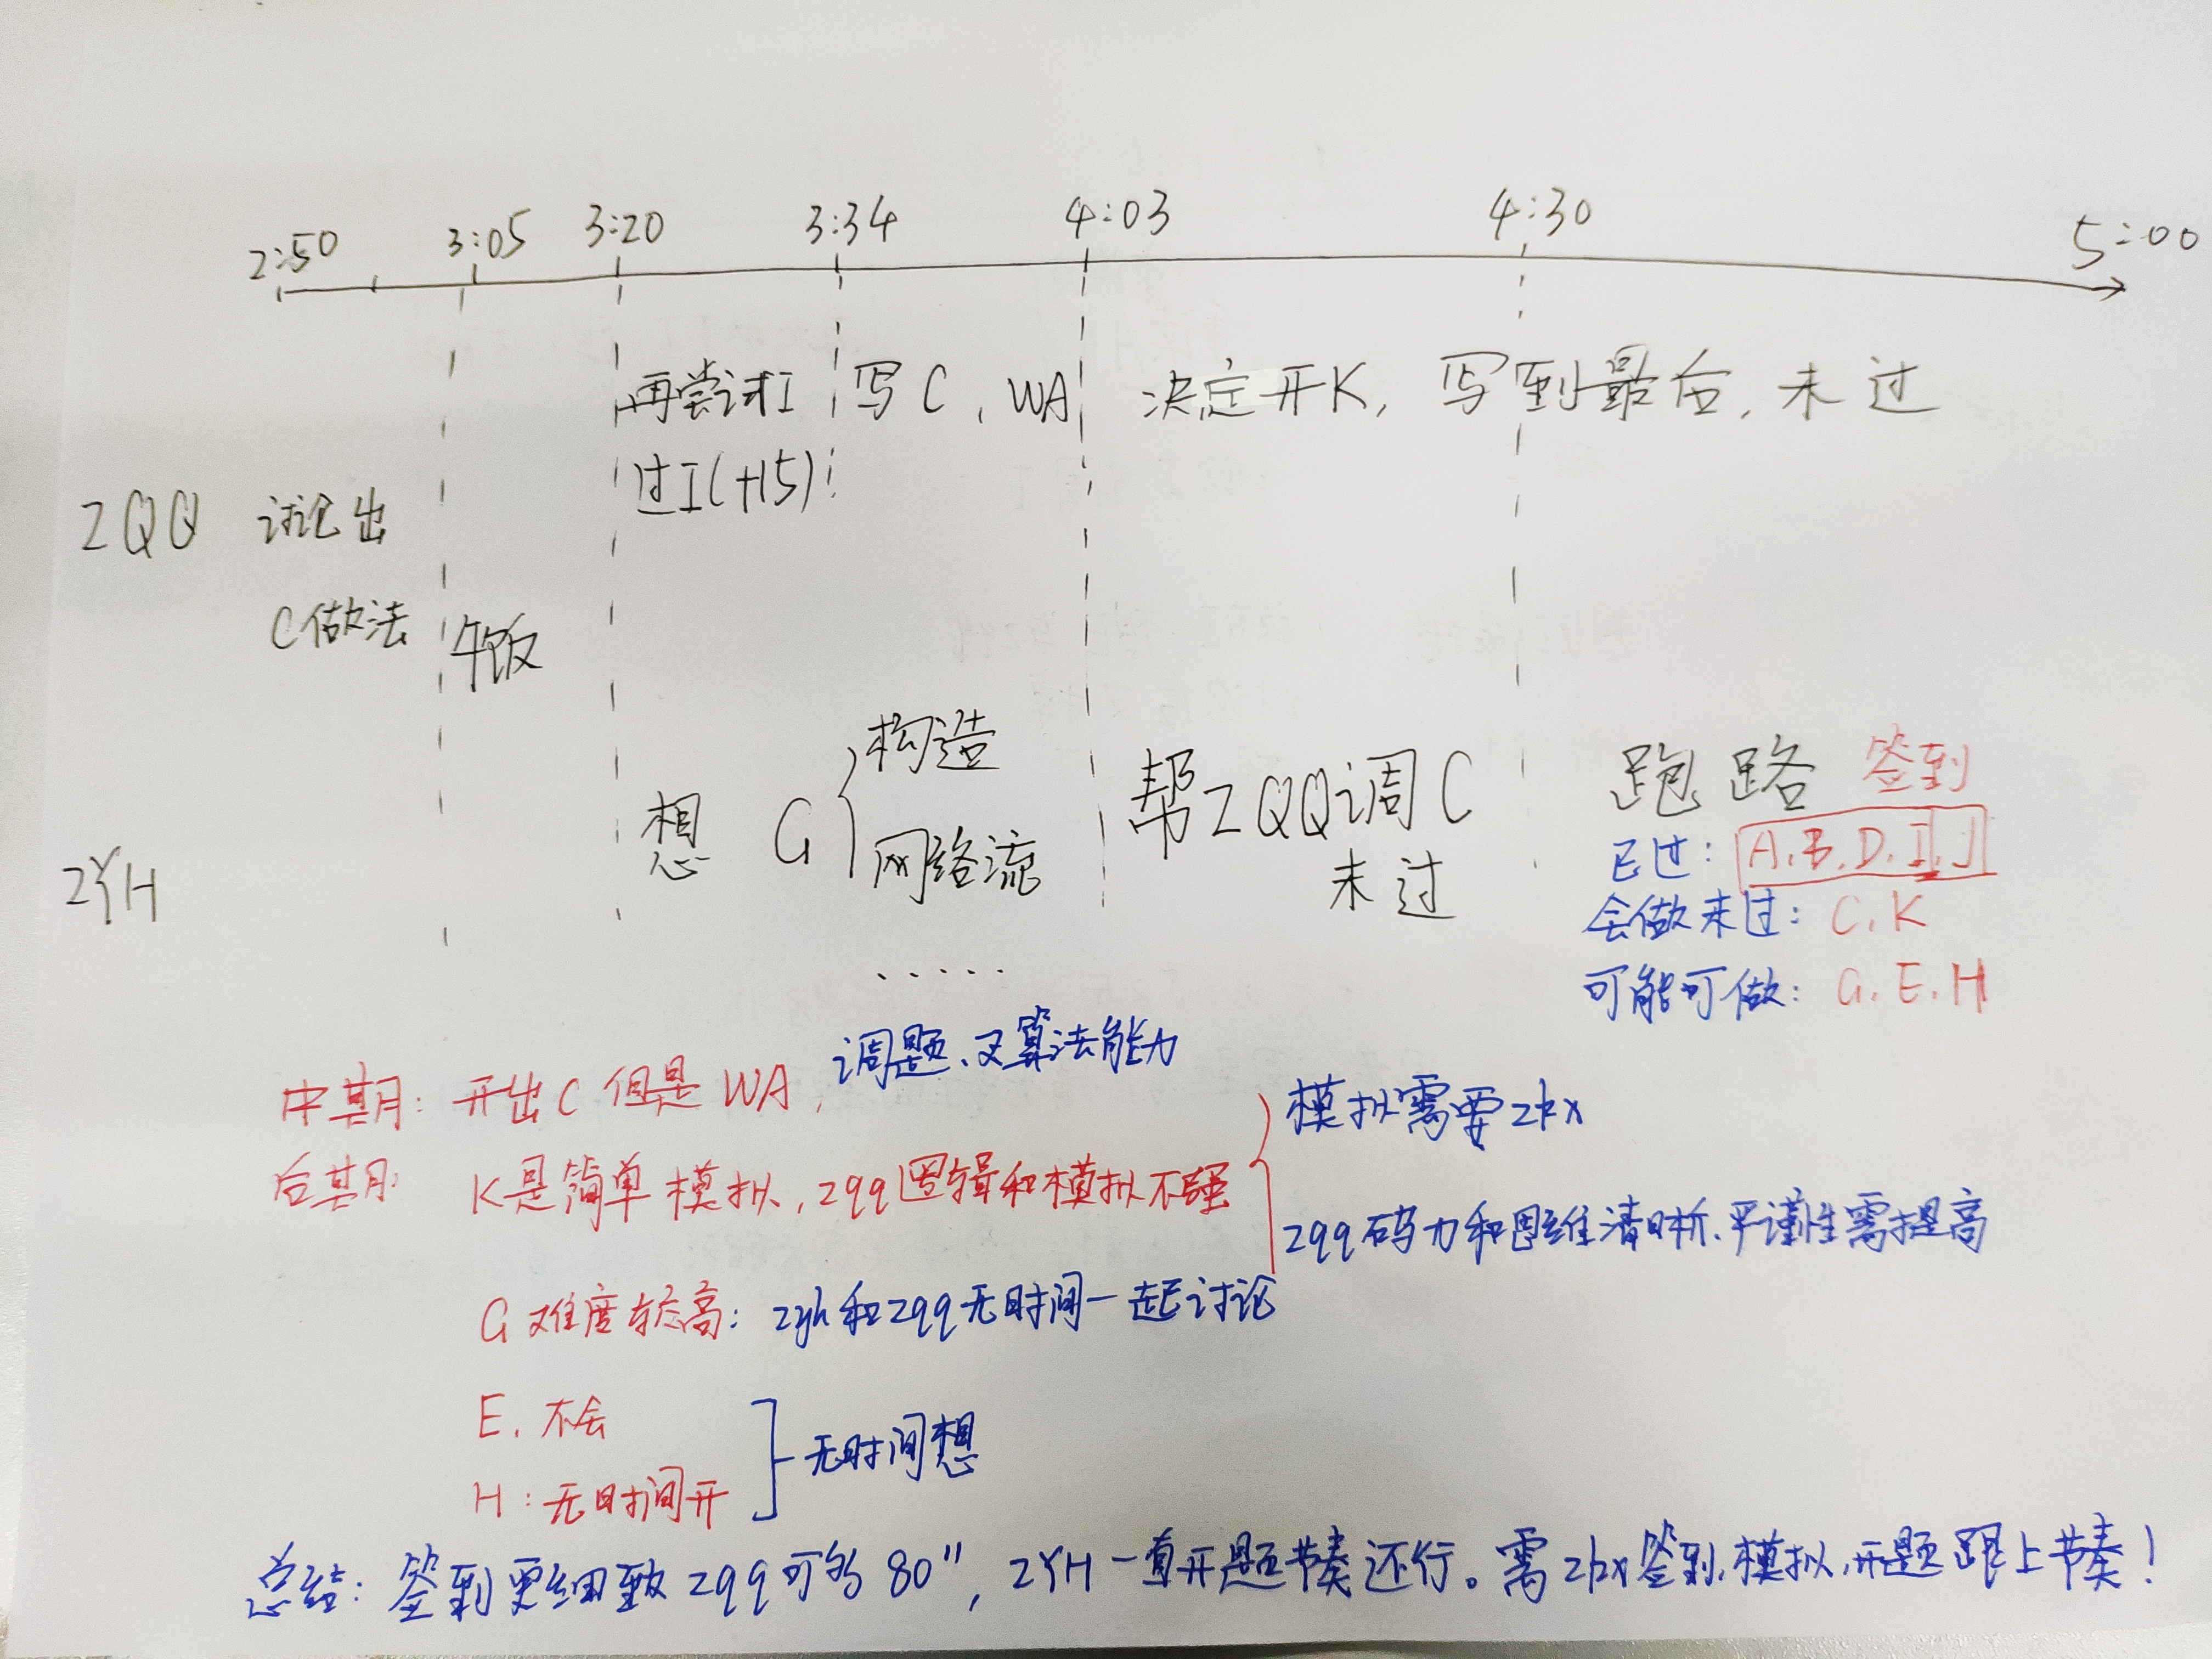 2:50 3:05 3:20 3:34 4:03 4:30 5:00
再尝试I 写C, WA 决定开K, 写到最后, 未过
过I(+15)
ZQQ 讨论出
C做法
午饭
构造
想 G
网络流
帮ZQQ调C
未过
跑路 签到
已过: A.B.D.I.J
ZYH
会做未过: C.K
可能可做: G.E.H
.....
调题、及算法能力
中期: 开出C但是WA,
模拟需要zbx
后期: K是简单模拟, zqq逻辑和模拟不强
zqq码力和思维清晰、严谨性需提高
G难度较高: zyh和zqq无时间一起讨论
E. 不会
无时间想
H: 无时间开
总结: 签到更细致 zqq可为80", ZYH一直开题节奏还行。需zbx签到,模拟,开题跟上节奏!